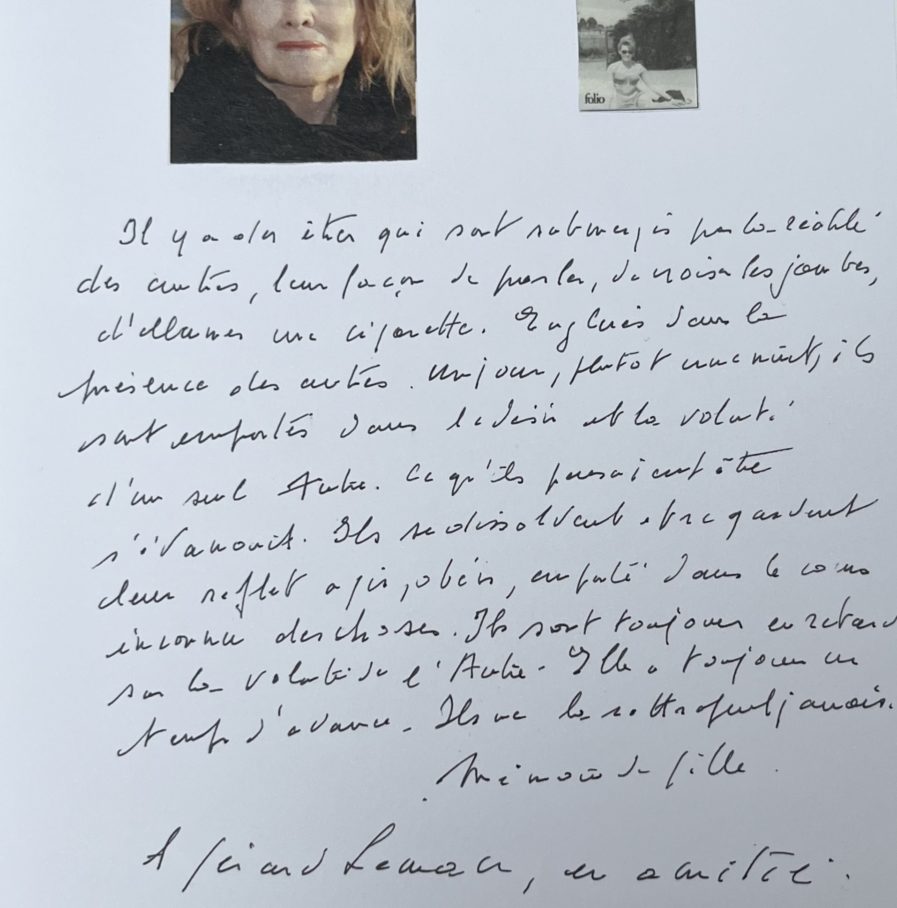 folio
Il y a des êtres qui sont submergés par la réalité
des autres, leur façon de parler, de croiser les jambes,
d'allumer une cigarette. Englués dans la
présence des autres. Un jour, plutôt une nuit, ils
sont emportés dans le désir et la volonté
d'un seul Autre. Ce qu'ils pensaient être
s'évanouit. Ils se dissolvent et regardent
leur reflet agir, obéir, emporté dans le cours
inconnu des choses. Ils sont toujours en retard
sur la volonté de l'Autre. Elle a toujours un
temps d'avance. Ils ne la rattrapent jamais.
Mémoire de fille.
A Gérard, en amitié.